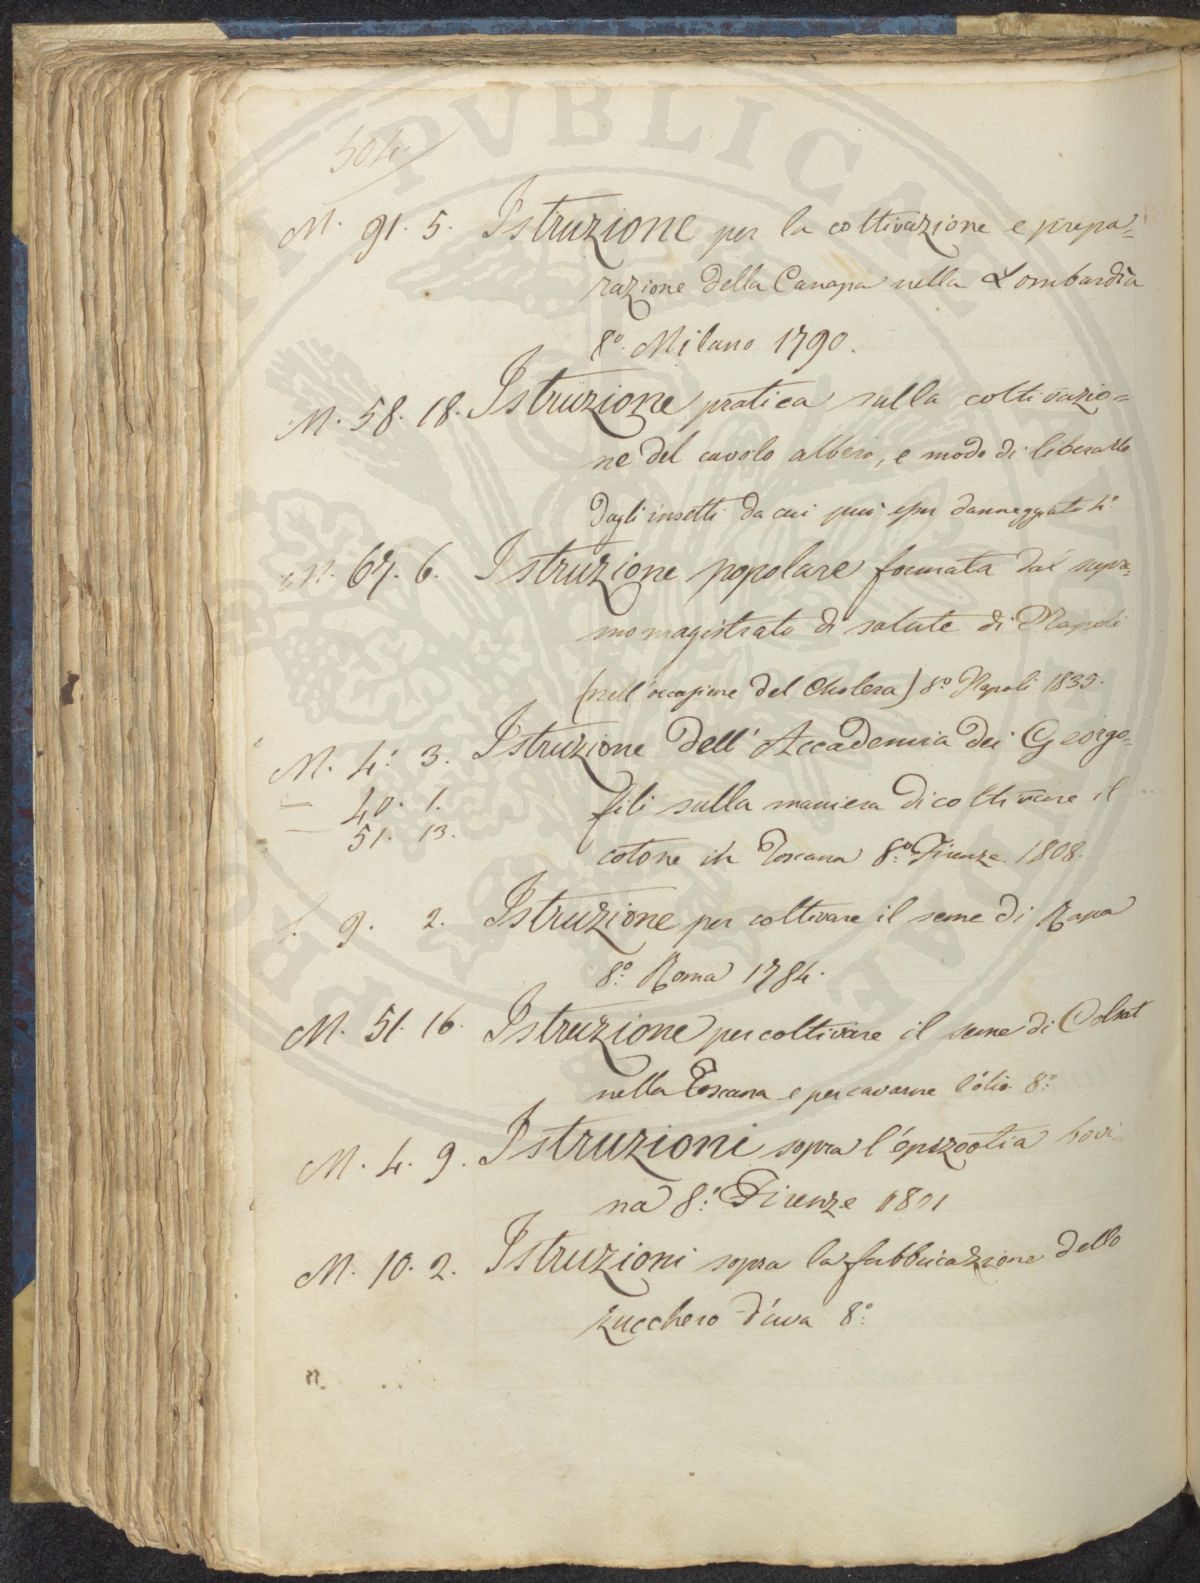 504.
M. 91. 5. Istruzione per la coltivazione e prepa=
razione della Canapa nella Lombardia
8.º Milano 1790.
M. 58. 18. Istruzione pratica sulla coltivazio=
ne del cavolo albero, e modo di liberarlo
dagli insetti da cui può esser danneggiato 4.º
M. 67. 6. Istruzione popolare formata dal supre=
mo magistrato di salute di Napoli
(nell'occasione del Cholera) 8.º Napoli 1835.
M. 4. 3. Istruzione dell'Accademia dei Georgo=
— 40. 1. fili sulla maniera di coltivare il
— 51. 13. cotone in Toscana 8.º Firenze 1808.
9. 2. Istruzione per coltivare il seme di Rapa
8.º Roma 1784.
M. 51. 16. Istruzione per coltivare il seme di Colsat
nella Toscana e per cavarne l'olio 8.º
M. 4. 9. Istruzioni sopra l'epizootia bovi=
na 8.º Firenze 1801
M. 10. 2. Istruzioni sopra la fabbricazione dello
zucchero d'uva 8.º